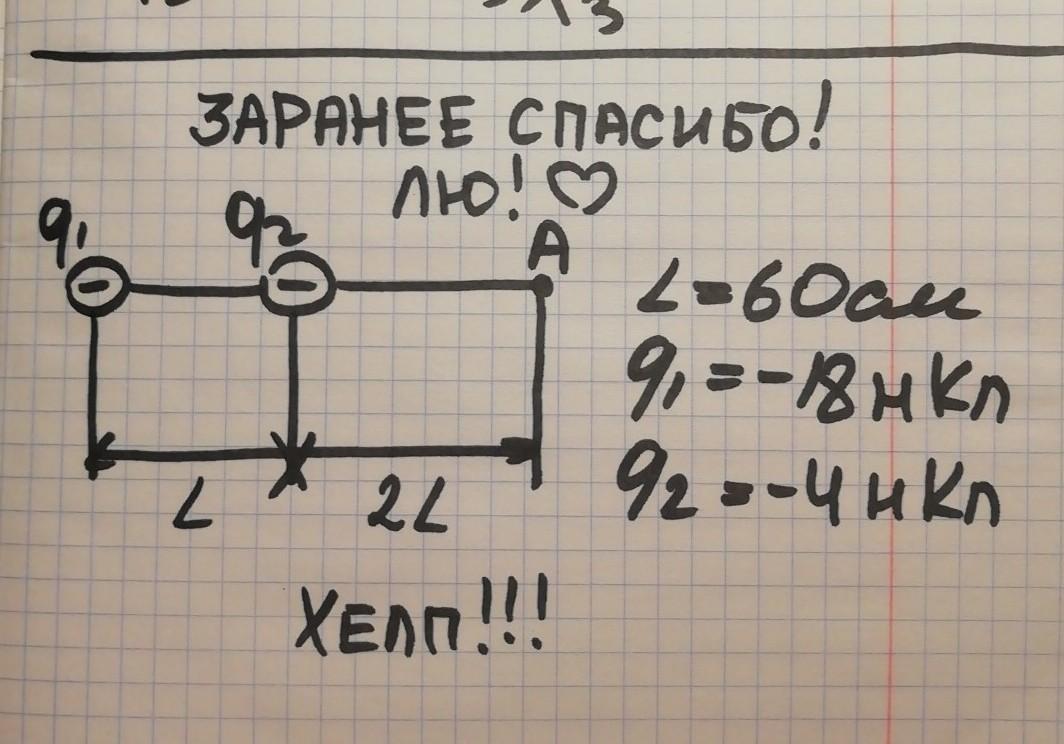 ЗАРАНЕЕ СПАСИБО!
ЛЮ! ♡
q1 q2 A
L = 60 см
q1 = -18 нКл
q2 = -4 нКл
L 2L
ХЕЛП!!!